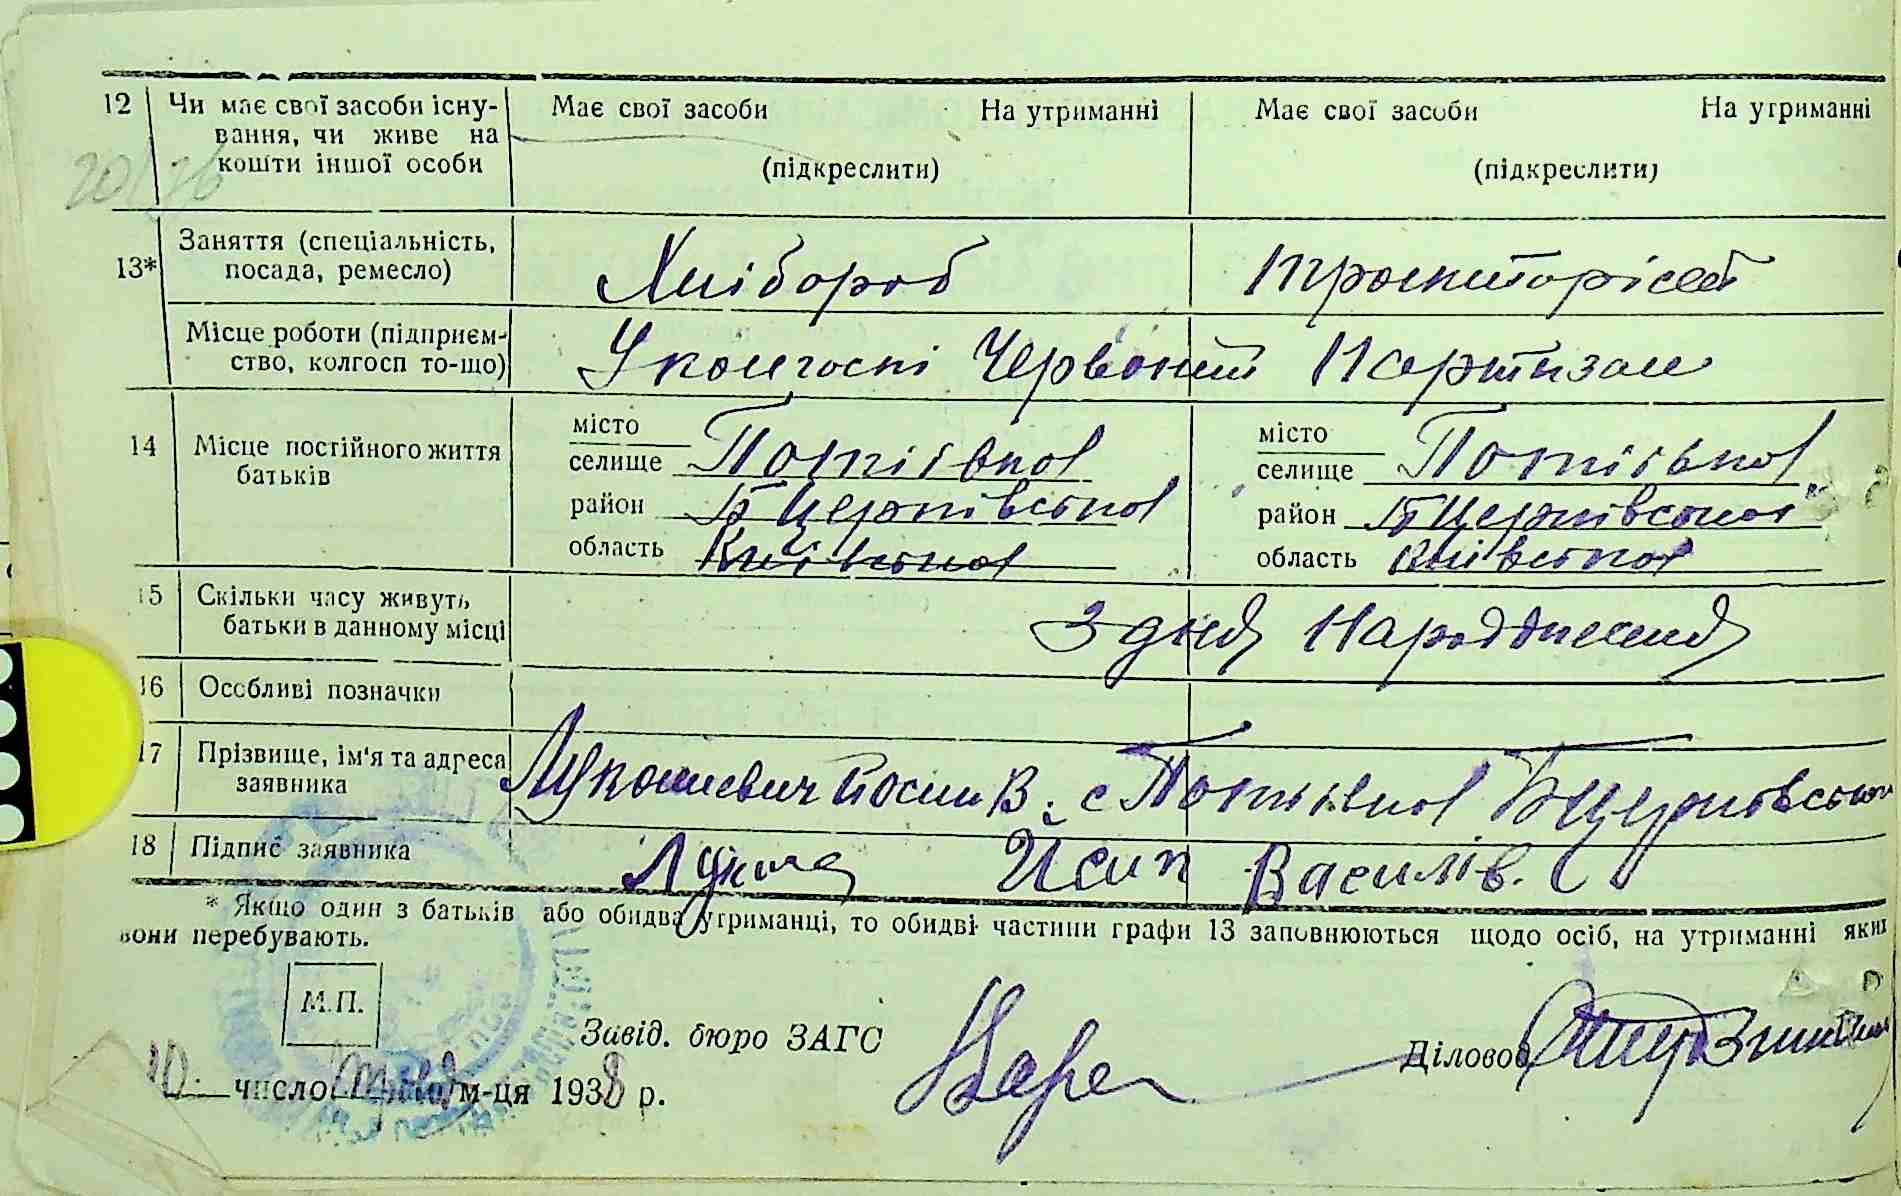 12 Чи має свої засоби існу- Має свої засоби На утриманні Має свої засоби На утриманні
вання, чи живе на
кошти іншої особи (підкреслити) (підкреслити)
20/36
13* Заняття (спеціальність, Хлібороб Тракторіст
посада, ремесло)
Місце роботи (підприєм- У колгоспі Червоний Партизан
ство, колгосп то-що)
14 Місце постійного життя місто місто
батьків селище Потіївка селище Потіївка
район БЦерківської район БЦерківської
область Київської область Київської
15 Скільки часу живуть З дня Народження
батьки в данному місці
16 Особливі позначки
17 Прізвище, ім'я та адреса Лукашевич Йосип В. с Потіївка БЦерківської
заявника
18 Підпис заявника Йсип Василів.
* Якщо один з батьків або обидва утриманці, то обидві частини графи 13 заповнюються щодо осіб, на утриманні яких
вони перебувають.
М.П.
Завід. бюро ЗАГС Діловод
10 число м-ця 1938 р.